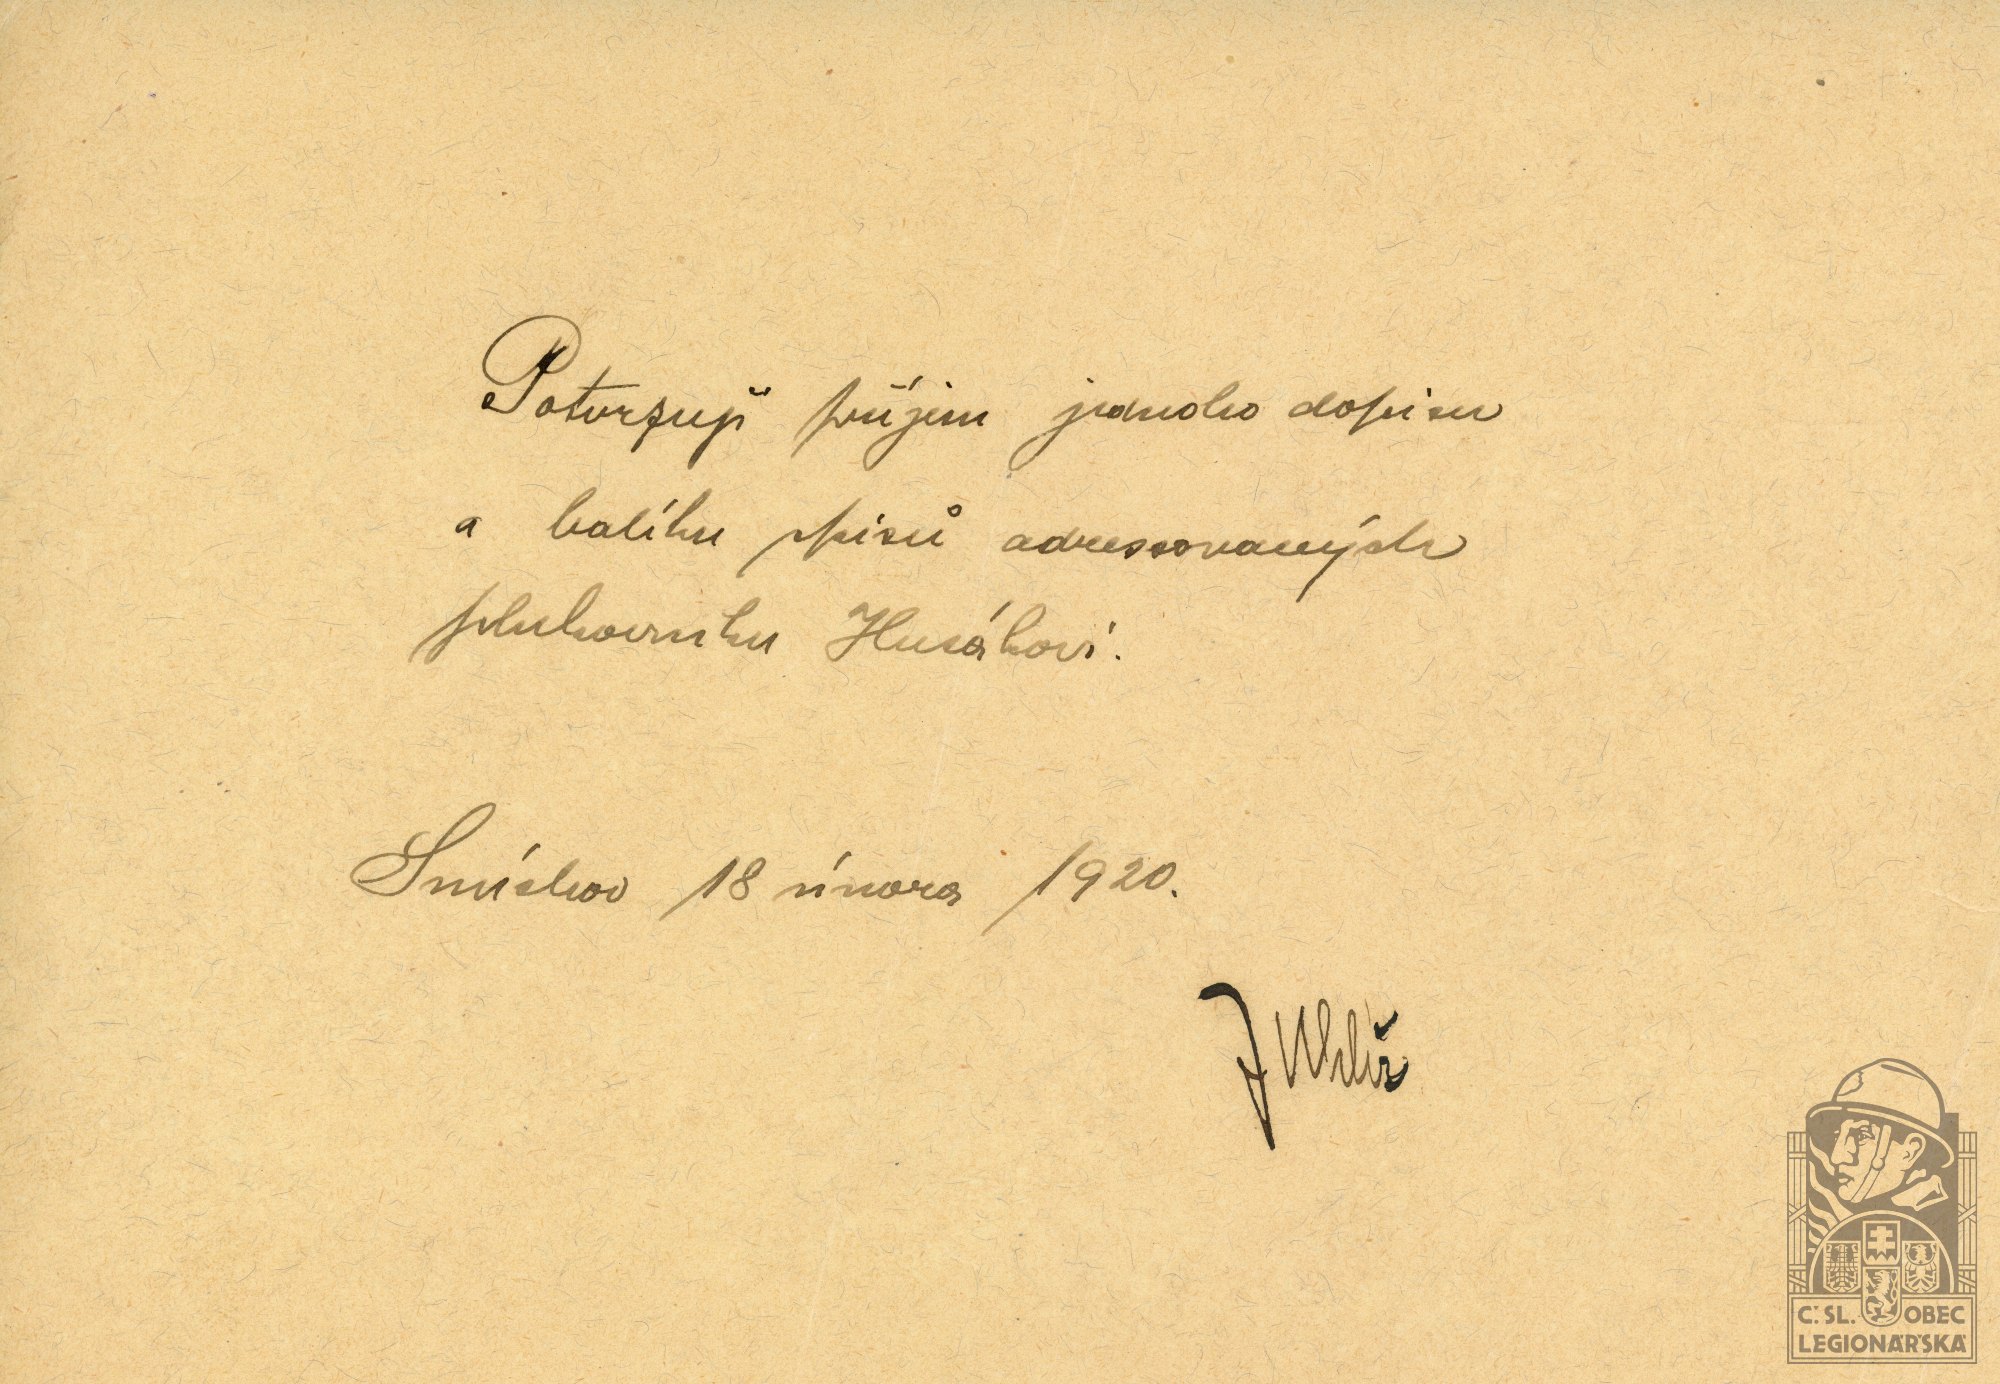 Potvrzuji příjem jednoho dopisu
a balíku spisů adressovaných
plukovníku Husákovi.
Smíchov 18 února 1920.
J Uhlíř
Č. SL. OBEC
LEGIONÁŘSKÁ